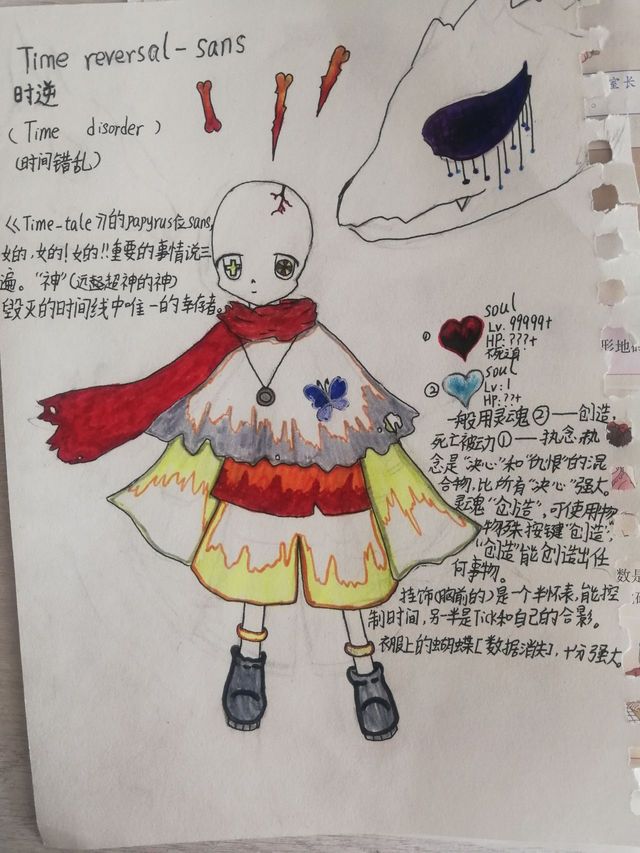 Time reversal-sans
时逆
(Time disorder)
(时间错乱)
《Time-tale》的papyrus位sans,
女的,女的!女的!!重要的事情说三
遍。"神"(远超神的神)
毁灭的时间线中唯一的幸存者。
① soul
Lv. 99999+
HP: ???+
② soul
Lv: 1
HP: ??+
一般用灵魂②——创造,
死亡被动①——执念,执
念是"决心"和"仇恨"的混
合物,比所有"决心"强大。
灵魂"创造",可使用特
殊按键"创造",
"创造"能创造出任
何事物。
挂饰(胸前的)是一个半怀表,能控
制时间,另一半是Tick和自己的合影。
衣服上的蝴蝶[数据消失],十分强大。
室长
形地
数是